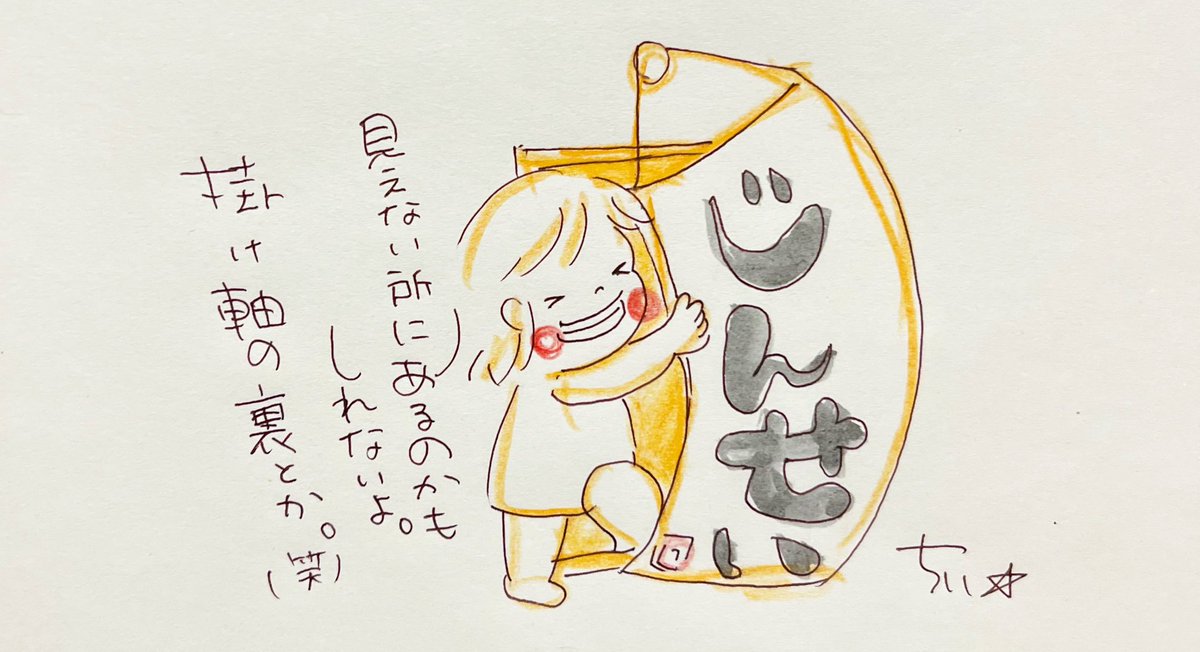 じんせい
見えない所にあるのかも
しれないよ。
掛け軸の裏とか。
(笑)
ちい☆